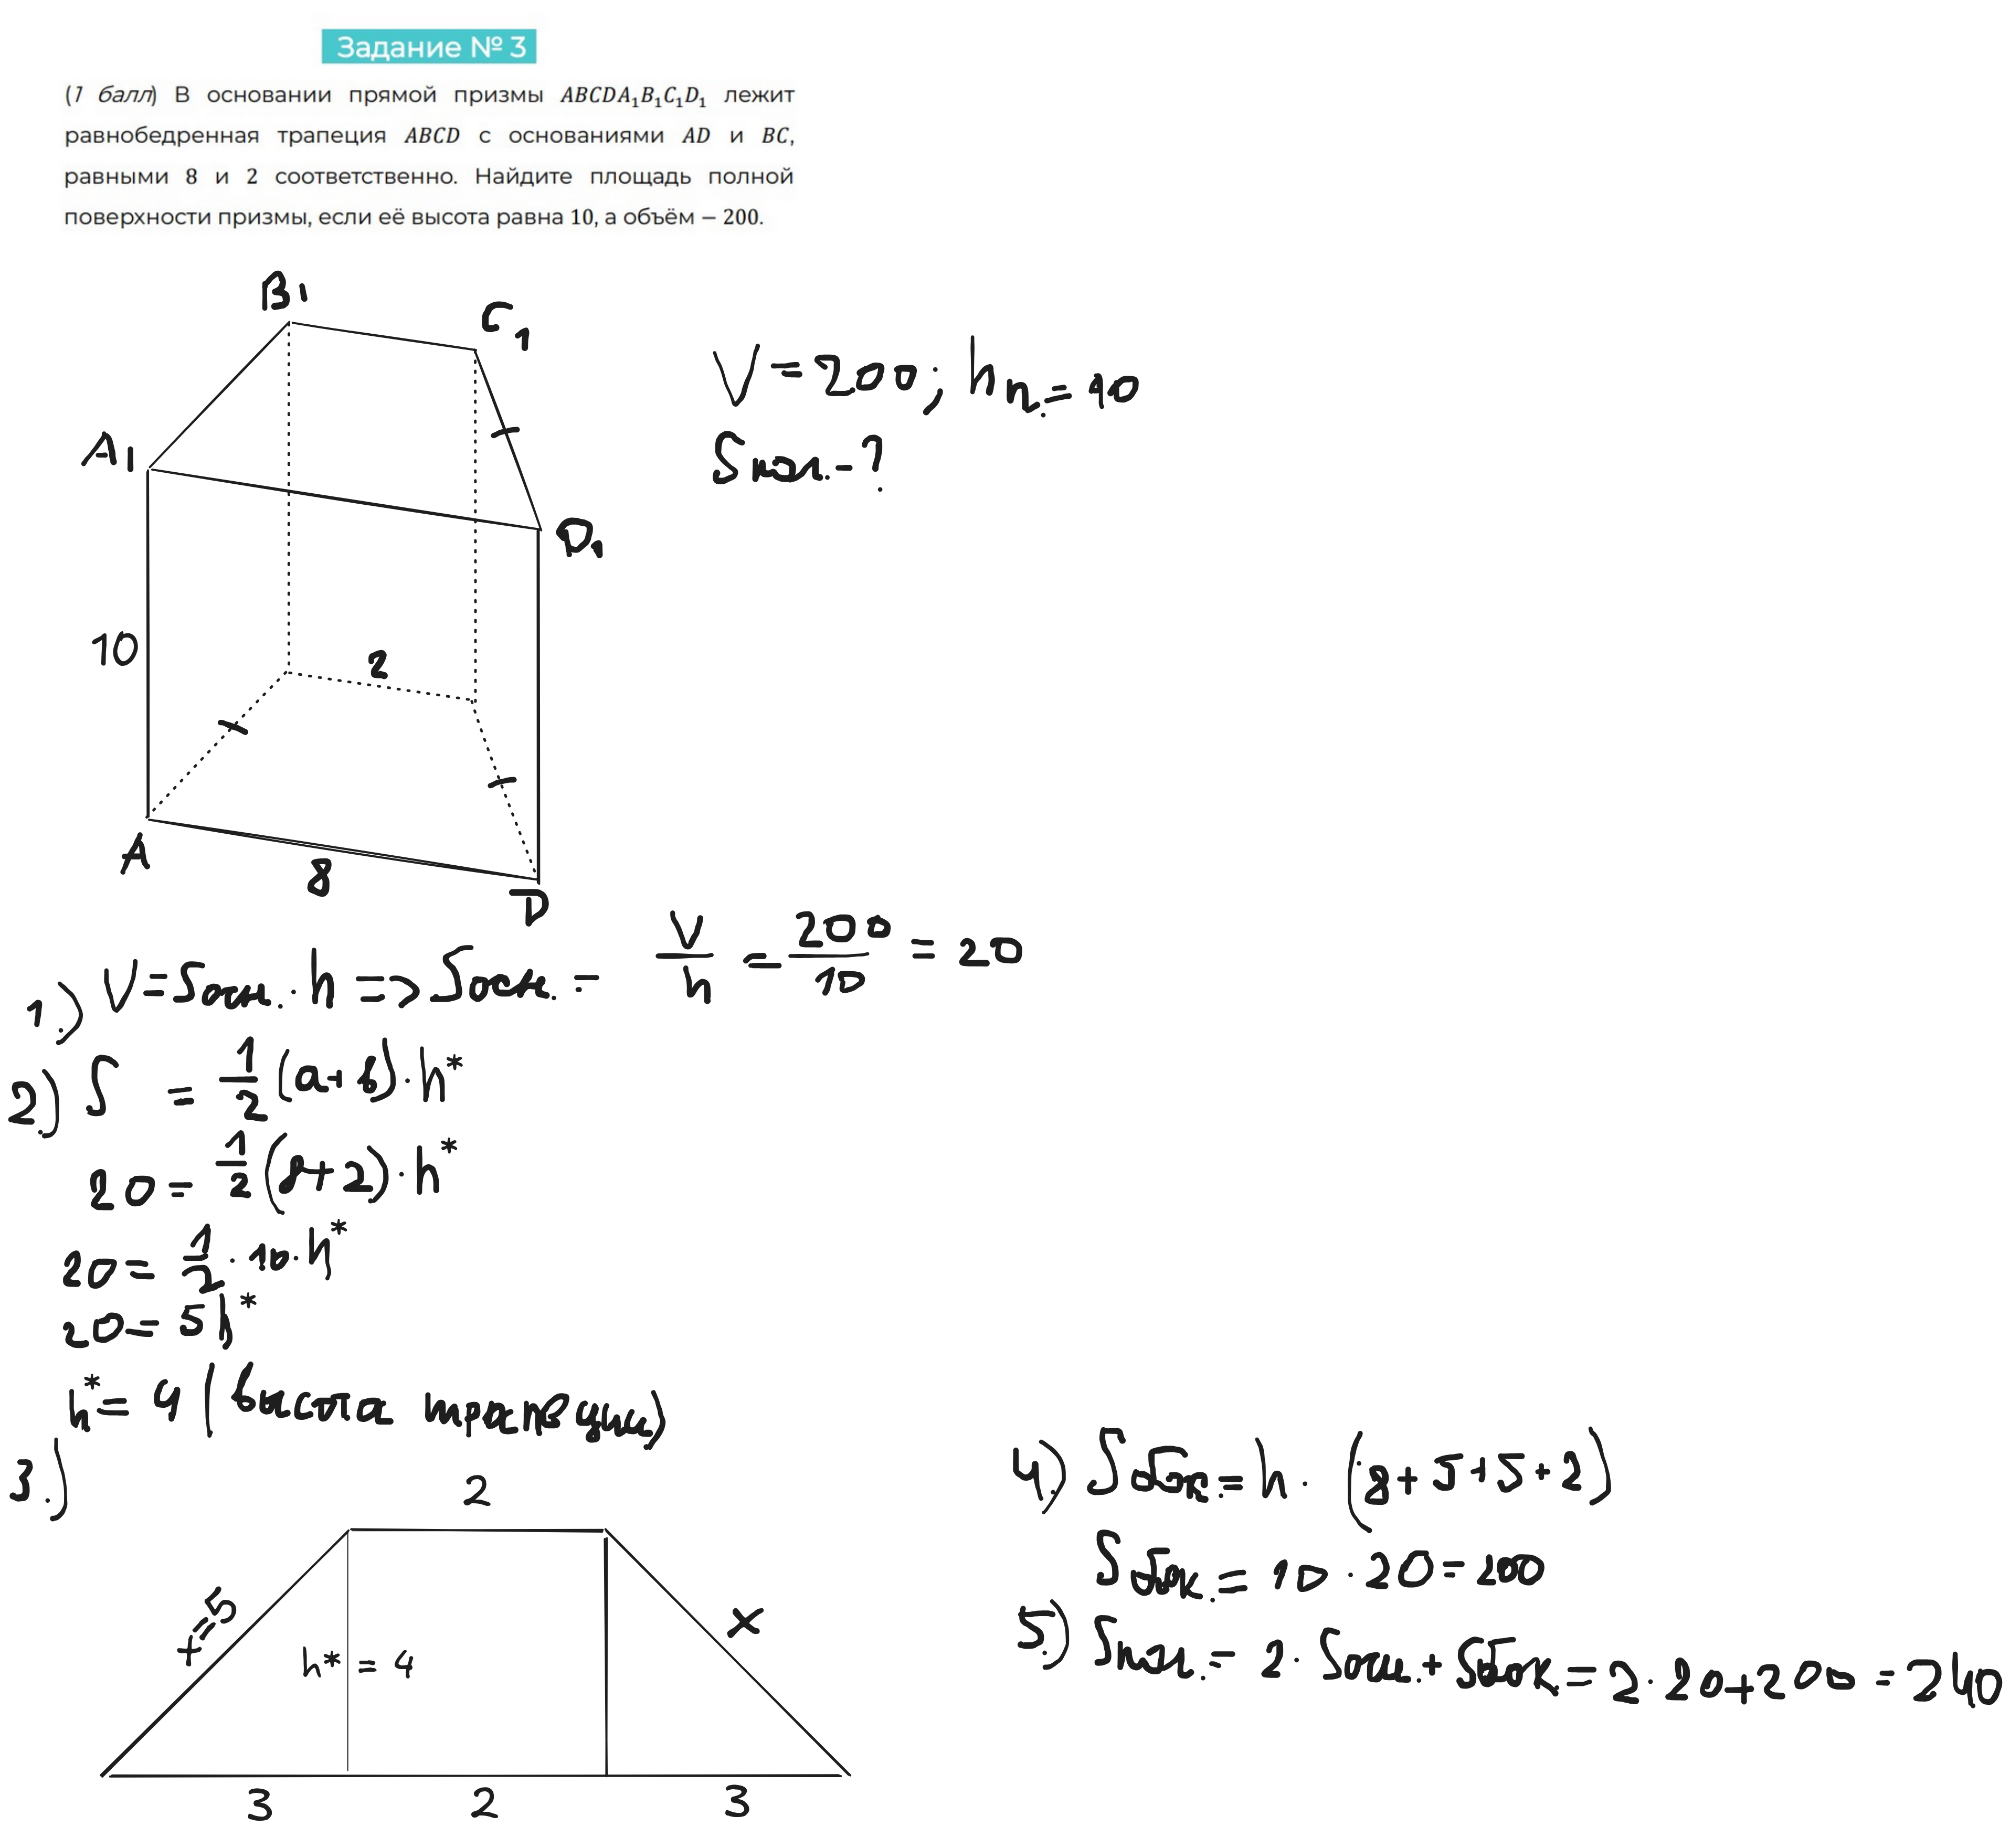 Задание № 3
(1 балл) В основании прямой призмы ABCDA₁B₁C₁D₁ лежит
равнобедренная трапеция ABCD с основаниями AD и BC,
равными 8 и 2 соответственно. Найдите площадь полной
поверхности призмы, если её высота равна 10, а объём – 200.
B₁
C₁
A₁
D₁
10
2
A
8
D
V=200; hп.=10
Sпол.-?
1.) V=Sосн.·h => Sосн.= V/h = 200/10 = 20
2.) S = 1/2 (a+b)·h*
20 = 1/2 (8+2)·h*
20 = 1/2 · 10·h*
20 = 5h*
h* = 4 (высота трапеции)
3.)
2
x=5
h* = 4
x
3
2
3
4.) Sбок.= h · (8+5+5+2)
Sбок.= 10 · 20=200
5.) Sпол.= 2· Sосн.+ Sбок.= 2·20+200 = 240